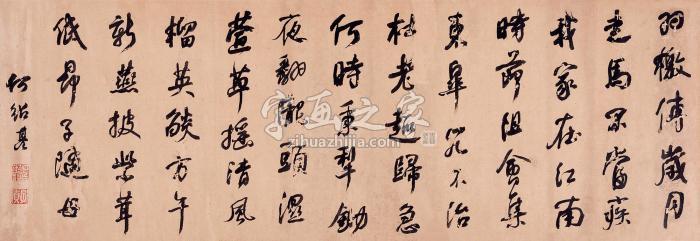 羽檄傳歲月
馬不當疾
我家在江南
時節阻會集
東皐不治
老趣歸急
何時秉犁鋤
夜隴頭濕
萱草摇清風
榴英燄方午
新燕披紫茸
低昂子隨母
何紹基
字画之家
zihuazhijia.com